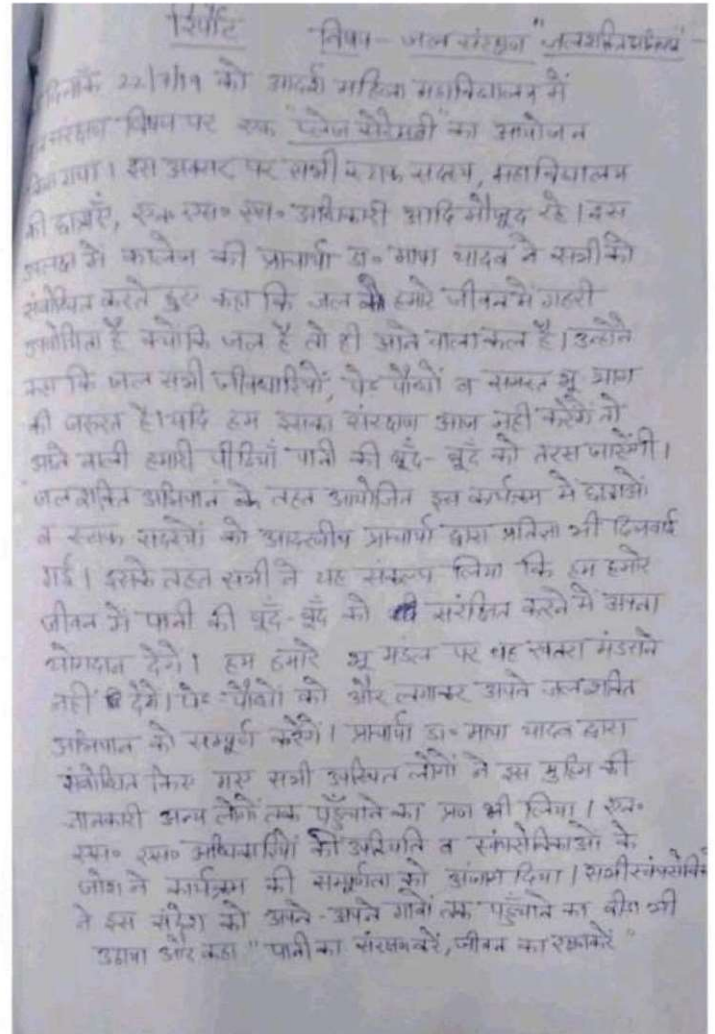 रिपोर्ट
विषय - जल संरक्षण "जलशक्ति अभियान"
दिनांक 22/7/19 को आदर्श महिला महाविद्यालय में
संरक्षण विषय पर एक "प्लेज सेरेमनी" का आयोजन
किया गया। इस अवसर पर सभी स्टाफ सदस्य, महाविद्यालय
की छात्राएँ, एन॰ एस॰ एस॰ अधिकारी आदि मौजूद रहे। इस
में कालेज की प्राचार्या डा॰ माया यादव ने सभी को
संबोधित करते हुए कहा कि जल की हमारे जीवन में गहरी
उपयोगिता है क्योंकि जल है तो ही आने वाला कल है। उन्होंने
कहा कि जल सभी जीवधारियों, पेड पौधों व समस्त भू भाग
की जरुरत है। यदि हम इसका संरक्षण आज नहीं करेंगे तो
आने वाली हमारी पीढियाँ पानी की बूँद - बूँद को तरस जाएंगी।
जलशक्ति अभियान के तहत आयोजित इस कार्यक्रम में छात्राओं
व स्टाफ सदस्यों को आदरणीय प्राचार्या द्वारा प्रतिज्ञा भी दिलवाई
गई। इसके तहत सभी ने यह संकल्प लिया कि हम हमारे
जीवन में पानी की बूँद - बूँद को संरक्षित करने में अपना
योगदान देंगे। हम हमारे भू मंडल पर यह खतरा मंडराने
नहीं देंगे। पेड - पौधों को और लगाकर अपने जलशक्ति
अभियान को सम्पूर्ण करेंगे। प्राचार्या डा॰ माया यादव द्वारा
संबोधित किए गए सभी उपस्थित लोगों ने इस मुहिम की
जानकारी अन्य लोगों तक पहुँचाने का प्रण भी लिया। एन॰
एस॰ एस॰ अधिकारियों की उपस्थिति व स्वंयसेविकाओं के
जोश ने कार्यक्रम की सम्पूर्णता को अंजाम दिया। सभी
ने इस संदेश को अपने - अपने गावों तक पहुँचाने का बीड़ा भी
उठाया और कहा "पानी का संरक्षण करें, जीवन का रक्षा करें"